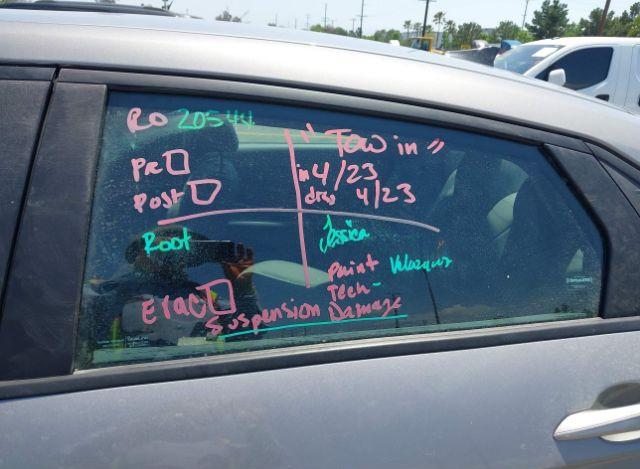 RO 20544
"Tow in"
Pre
in 4/23
Post
drop 4/23
Root
Jessica
Paint Velazquez
Tech-
Erac
Suspension Damage